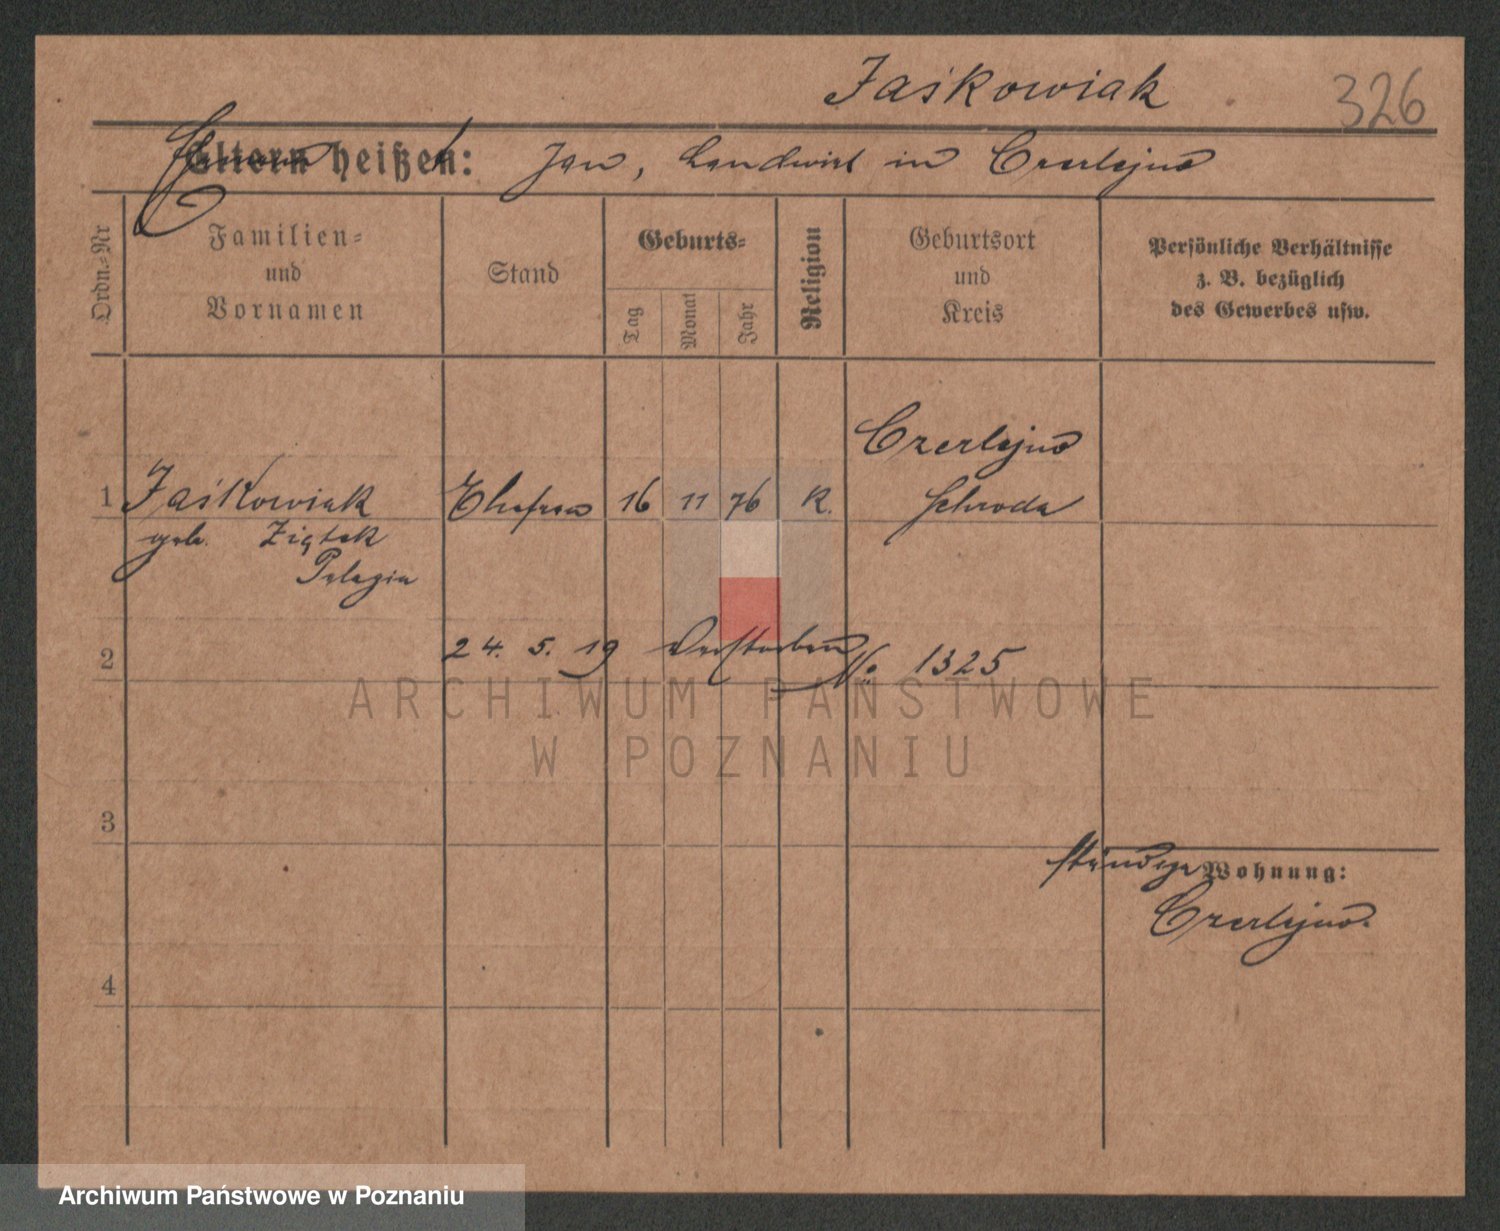 Jaśkowiak 326
Eltern heißen: Jan, Landwirt in Czerlejno
Ordn.=Nr
Familien=
und
Vornamen
Stand
Geburts=
Tag
Monat
Jahr
Religion
Geburtsort
und
Kreis
Persönliche Verhältnisse
z. B. bezüglich
des Gewerbes usw.
Czerlejno
1 Jaśkowiak Ehefrau 16 11 76 K. Schroda
geb. Ziętek
Pelagia
2 24. 5. 19 Verstorben No 1325
ARCHIWUM PAŃSTWOWE
W POZNANIU
3
ständige Wohnung:
Czerlejno.
4
Archiwum Państwowe w Poznaniu